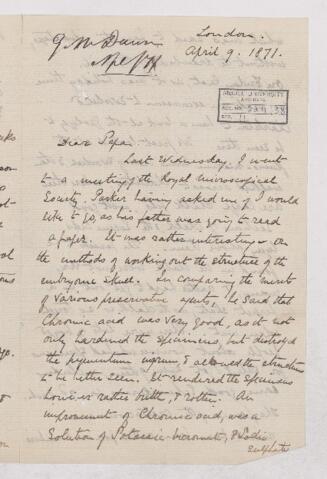 G M Dawson
London.
April 9. 1871.
McGILL UNIVERSITY
ARCHIVES
ACC. NO.
REF. 11
Dear Papa
Last Wednesday I went
to a meeting of the Royal Microscopical
Society, Parker having asked me if I would
like to go, as his father was going to read
a paper. It was rather interesting - on
the methods of working out the structure of the
embryonic skull. In comparing the merits
of various preservative agents, he said that
Chromic acid was very good, as it not
only hardened the specimens, but destroyd
the pigmentum nigrum, & allowed the structure
to be better seen. It rendered the specimens
however rather brittle, & rotten. An
improvement of Chromic acid, was a
Solution of Potassic bicromate, & Sodic
Sulphate